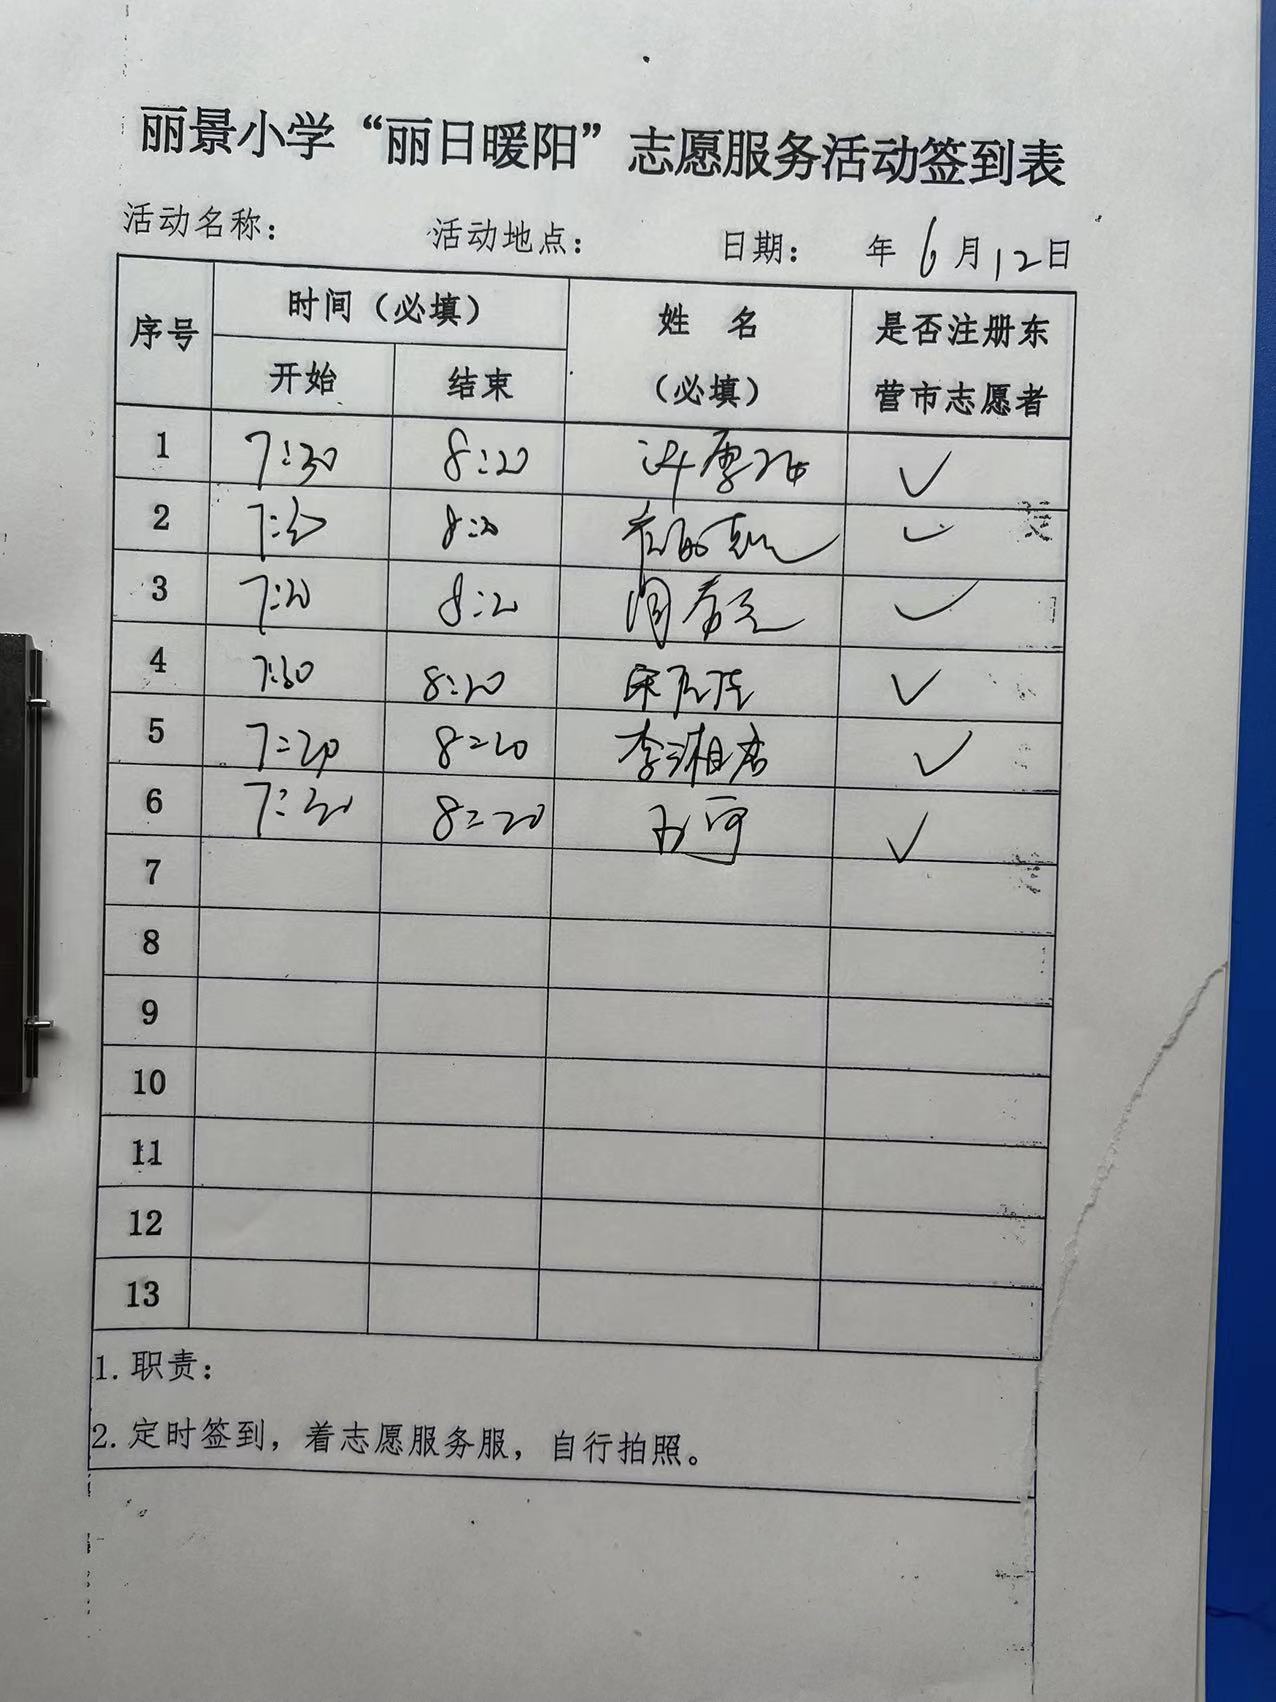 丽景小学“丽日暖阳”志愿服务活动签到表
活动名称： 活动地点： 日期： 年 6月12日
序号 时间（必填） 姓 名（必填） 是否注册东营市志愿者
开始 结束
1 7:30 8:20 ✓
2 8:20 ✓
3 7:20 8:20 ✓
4 7:30 8:20 ✓
5 7:20 8:20 李湘君 ✓
6 8:20 ✓
7
8
9
10
11
12
13
1. 职责：
2. 定时签到，着志愿服务服，自行拍照。